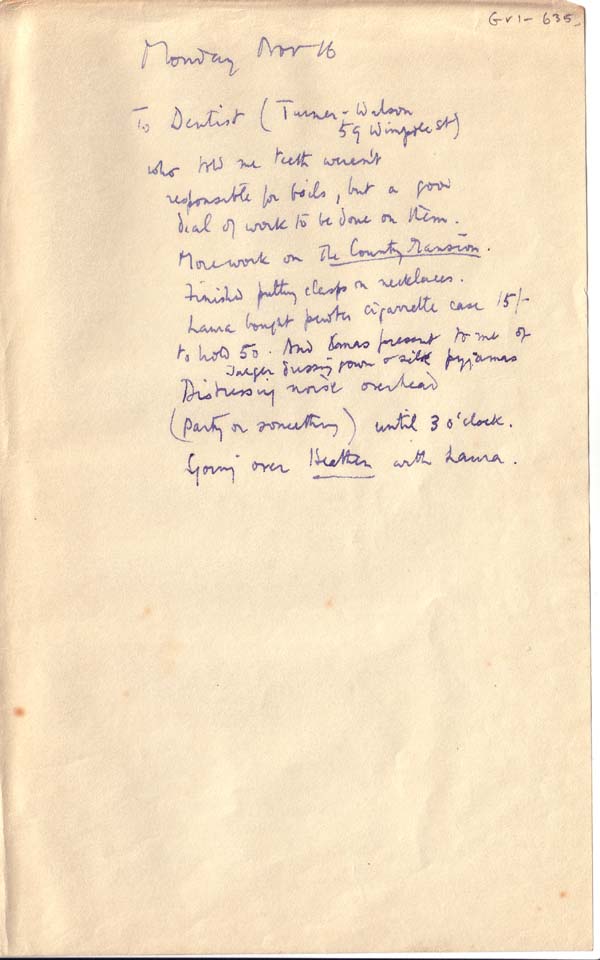 Gv1-635.
Monday Nov 16
To Dentist (Turner-Walson
59 Wimpole St)
who told me teeth weren't
responsible for boils, but a good
deal of work to be done on them.
More work on The County Mansion.
Finished putting clasps on necklaces.
Laura bought pewter cigarrette case 15/-
to hold 50. And Xmas present to me of
Jaeger dressing gown & silk pyjamas
Distressing noise overhead
(party or something) until 3 o'clock.
Going over Heathen with Laura.